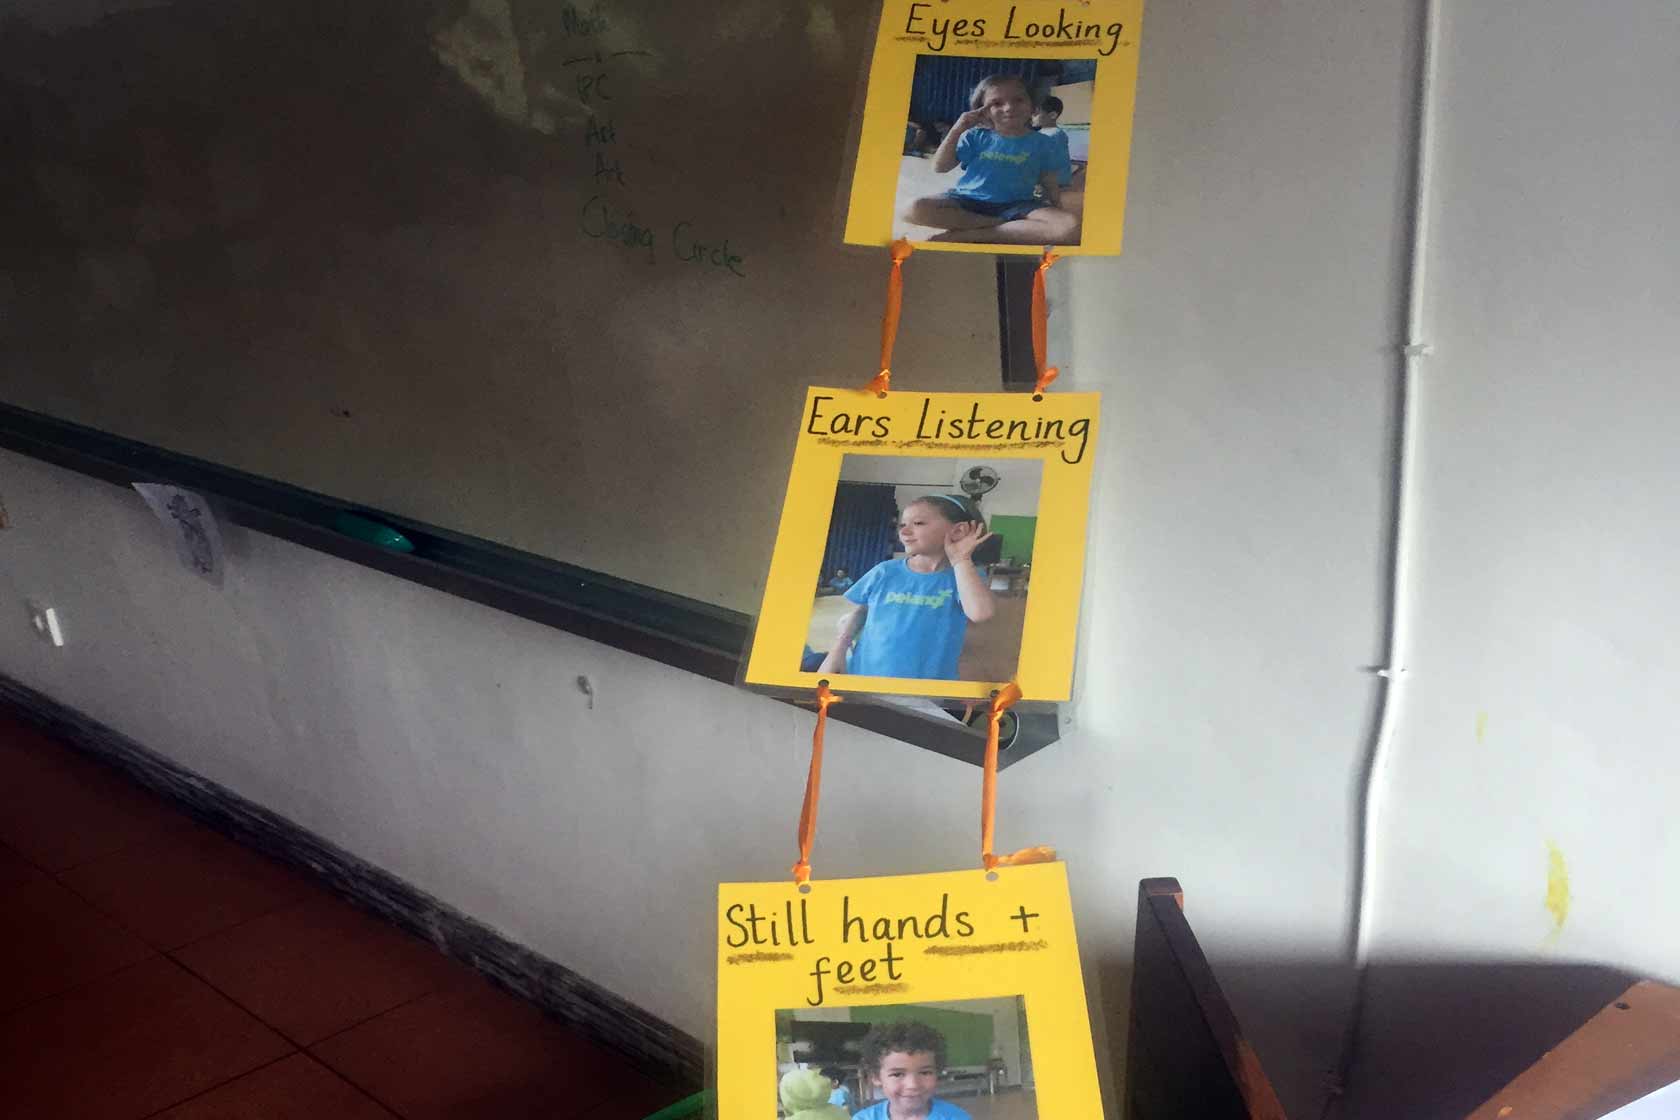 Math
IPC
Art
Art
Closing Circle
Eyes Looking
pelangi
Ears Listening
pelangi
Still hands +
feet